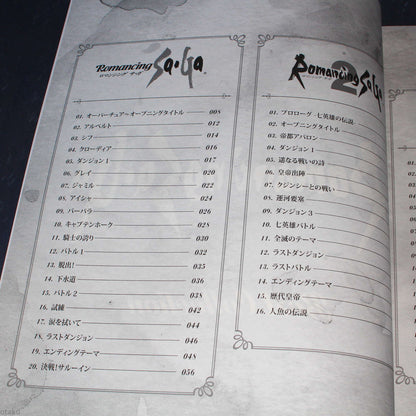 Romancing Sa・Ga
ロマンシング サ・ガ
01. オーバーチュア～オープニングタイトル 008
02. アルベルト 012
03. シフ 014
04. クローディア 016
05. ダンジョン1 017
06. グレイ 020
07. ジャミル 022
08. アイシャ 024
09. バーバラ 026
10. キャプテンホーク 028
11. 騎士の誇り 030
12. バトル1 032
13. 脱出! 035
14. 下水道 036
15. バトル2 038
16. 試練 042
17. 涙を拭いて 044
18. ラストダンジョン 046
19. エンディングテーマ 048
20. 決戦!サルーイン 056
Romancing Sa・Ga 2
01. プロローグ 七英雄の伝説
02. オープニングタイトル
03. 帝都アバロン
04. ダンジョン1
05. 遥なる戦いの詩
06. 皇帝出陣
07. クジンシーとの戦い
08. 運河要塞
09. ダンジョン3
10. 七英雄バトル
11. 全滅のテーマ
12. ラストダンジョン
13. ラストバトル
14. エンディングテーマ
15. 歴代皇帝
16. 人魚の伝説
otaku